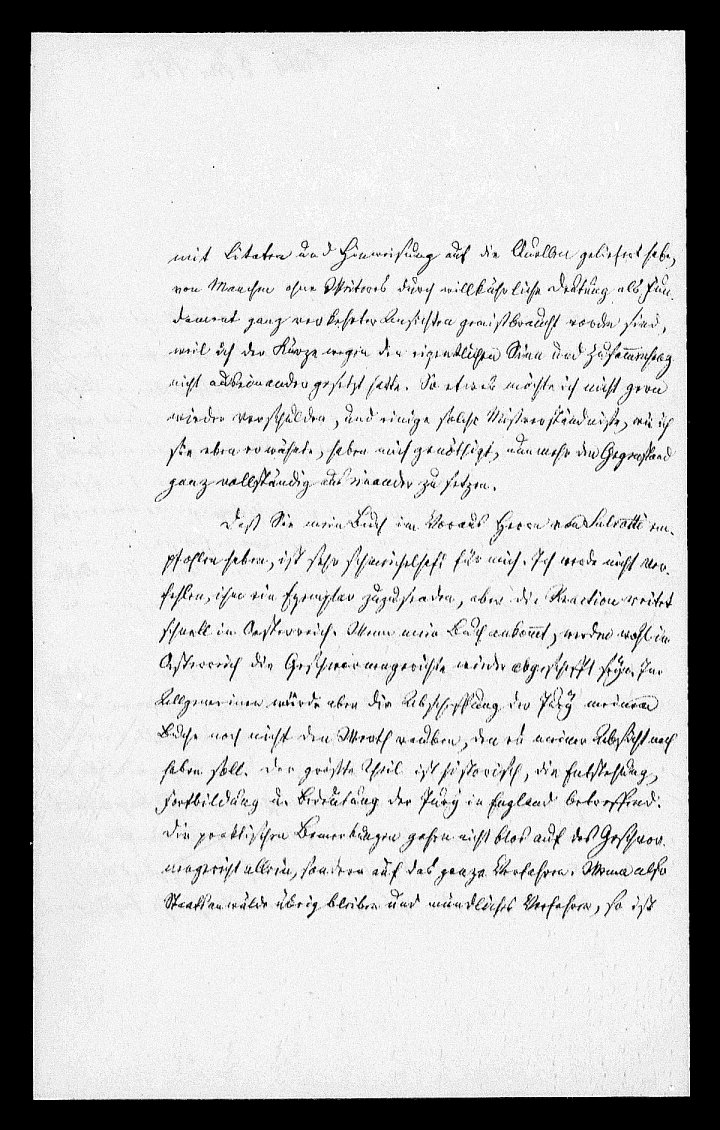 mit Citaten und Hinweisung auf die Quellen geliefert habe,
von Manchen ohne Weiteres durch willkührliche Deutung als Fun-
dament ganz verkehrter Ansichten gemisbraucht worden sind,
weil ich der Kürze wegen den eigentlichen Sinn und Zusammenhang
nicht auseinander gesetzt hatte. So etwas möchte ich nicht gern
wieder verschulden, und einige solche Misverständnisse, wie ich
sie eben erwähnte, haben mich genöthigt, nunmehr den Gegenstand
ganz vollständig aus einander zu setzen.
Daß Sie mein Buch im Voraus Herrn von Salvotti em-
pfohlen haben, ist sehr schmeichelhaft für mich. Ich werde nicht ver-
fehlen, ihm ein Exemplar zuzusenden, aber die Reaction reitet
schnell in Oesterreich. Wenn mein Buch ankommt, werden wohl in
Oesterreich die Geschwornengerichte wieder abgeschafft seyn. Im
Allgemeinen würde aber die Abschaffung der Jury meinem
Buche noch nicht den Werth rauben, den es meiner Absicht nach
haben soll. Der größte Theil ist historisch, die Entstehung,
Fortbildung u. Bedeutung der Jury in England betreffend.
Die praktischen Bemerkungen gehen nicht blos auf das Geschwor-
nengericht allein, sondern auf das ganze Verfahren. Wenn also
Staatsanwälde übrig bleiben und mündliches Verfahren, so ist